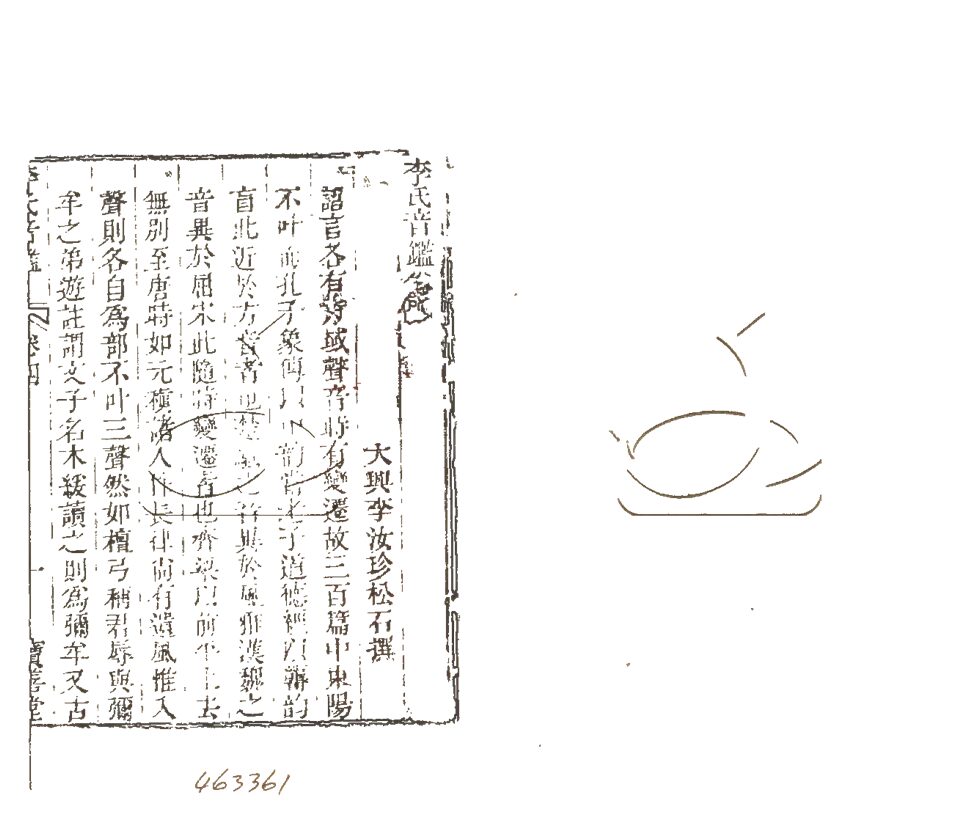 李氏音鑑
大興李汝珍松石撰
語言各有 域聲音時有變遷故三百篇中東陽
不叶 孔子象傳 韵 老子道德經 韵
盲此近於方音者也 音異於風雅漢魏之
音異於屈宋此隨時變遷者也齊梁以前平上去
無別至唐時如元稹諸人作長律尚有遺風惟入
聲則各自為部不叶三聲然如檀弓稱君辱與彌
牟之弟遊註謂文子名木緩讀之則為彌牟又古
李氏音鑑 卷四 一 寶善堂
463361